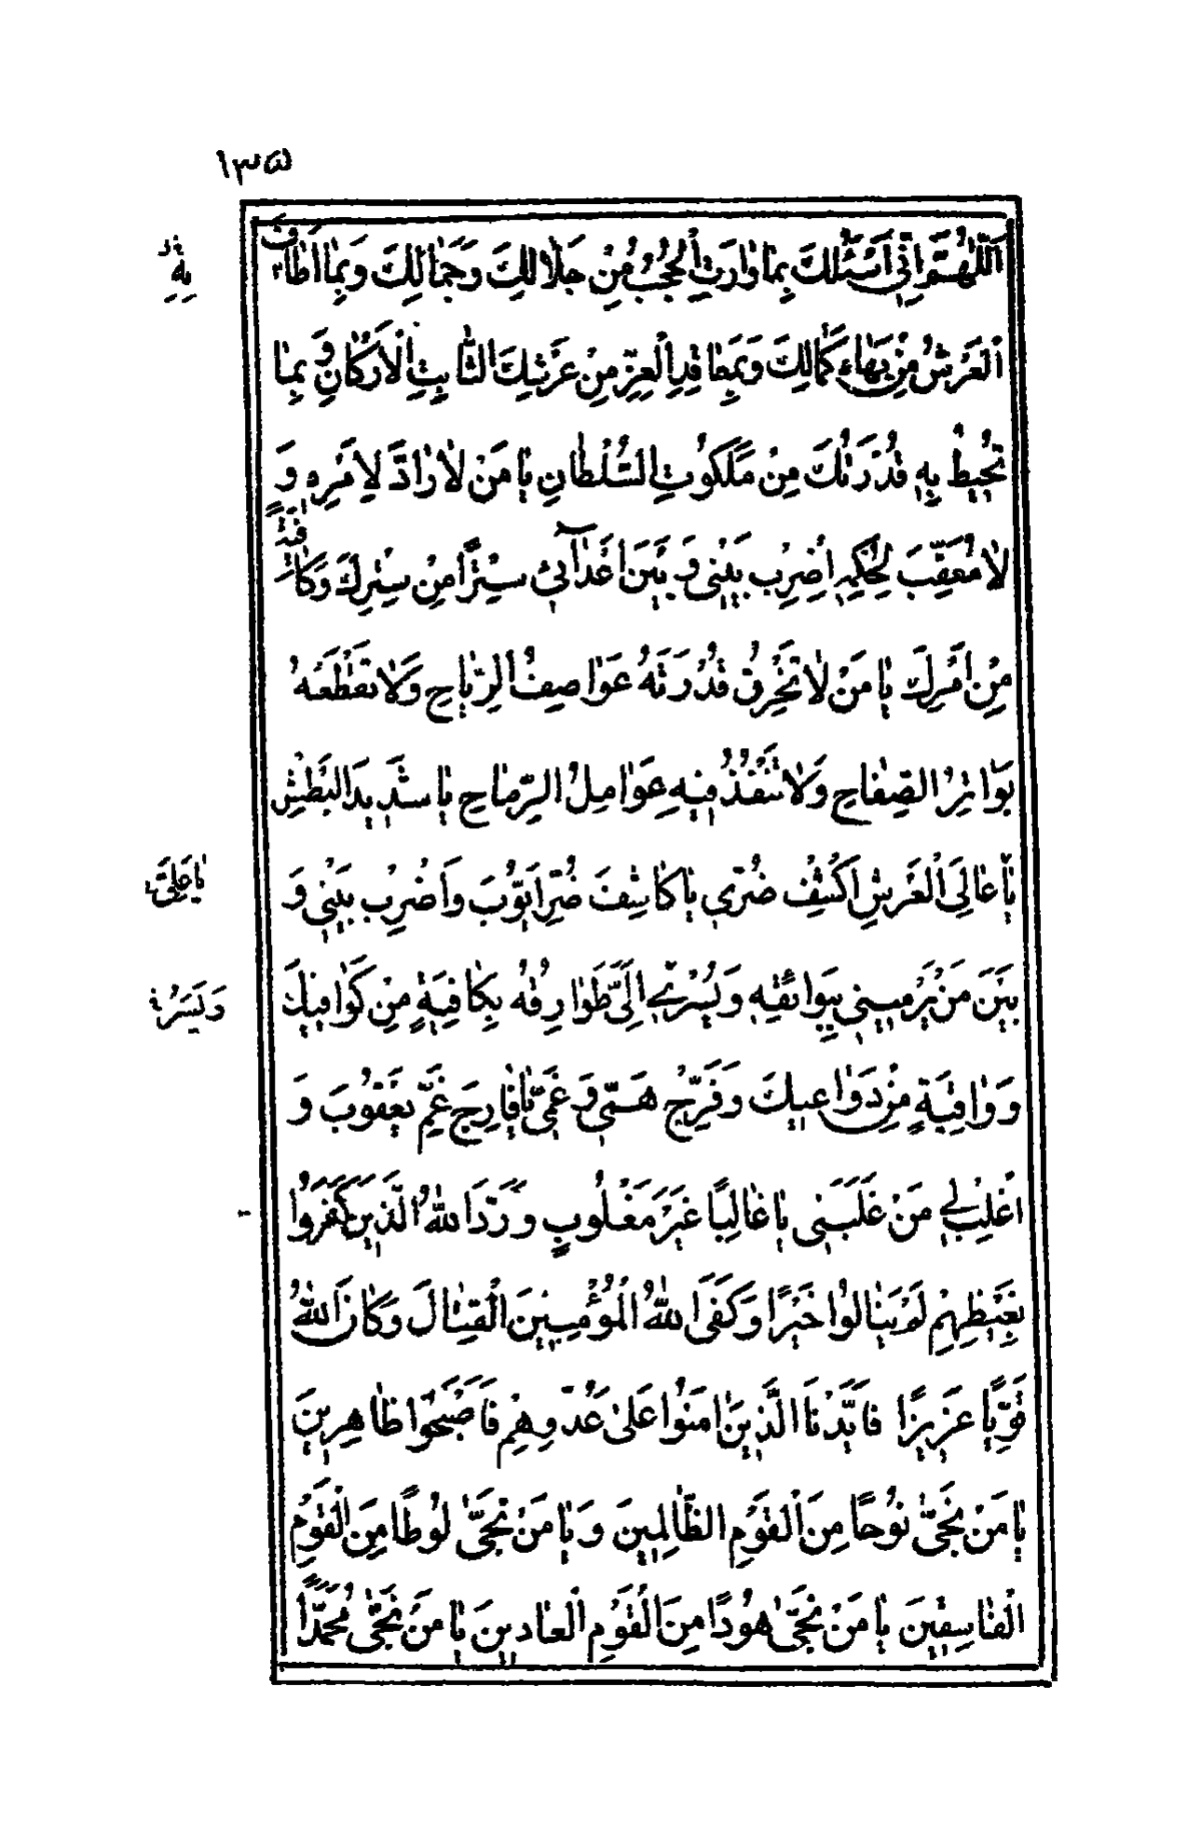 ١٣٥
اَللّٰهُمَّ اِنّٖى اَسْئَلُكَ بِمٰا وٰارَتِ الْحُجُبُ مِنْ جَلٰالِكَ وَجَمٰالِكَ وَبِمٰا اَطٰافَ
بِهِ
الْعَرْشُ مِنْ بَهٰاءِ كَمٰالِكَ وَبِمَعٰاقِدِ الْعِزِّ مِنْ عَرْشِكَ الثّٰابِتِ الْاَرْكٰانِ وَ بِمٰا
تُحٖيطُ بِهٖ قُدْرَتُكَ مِنْ مَلَكُوتِ السُّلْطٰانِ يٰا مَنْ لٰا رٰادَّ لِاَمْرِهٖ وَ
لٰا مُعَقِّبَ لِحُكْمِهٖ اِضْرِبْ بَيْنٖى وَ بَيْنَ اَعْدٰآئٖى سِتْرًا مِنْ سِتْرِكَ وَكٰافِيَةً
مِنْ اَمْرِكَ يٰا مَنْ لٰا تَخْرِقُ قُدْرَتَهُ عَوٰاصِفُ الرِّيٰاحِ وَلٰا تَقْطَعُهُ
بَوٰاتِرُ الصِّفٰاحِ وَلٰا تَنْفُذُ فٖيهِ عَوٰامِلُ الرِّمٰاحِ يٰا شَدٖيدَ الْبَطْشِ
يٰا عٰالِىَ الْعَرْشِ اكْشِفْ ضُرّٖى يٰا كٰاشِفَ ضُرِّ اَيُّوبَ وَاضْرِبْ بَيْنٖى وَ
يٰا عَلِىَّ
بَيْنَ مَنْ يَرْمٖينٖى بِبَوٰائِقِهٖ وَ يَسْرٖى اِلَىَّ طَوٰارِقُهُ بِكٰافِيَةٍ مِنْ كَوٰافٖيكَ
وَ يَسْرُ
وَ وٰاقِيَةٍ مِنْ دَوٰاعٖيكَ وَ فَرِّجْ هَمّٖى وَ غَمّٖى يٰا فٰارِجَ غَمِّ يَعْقُوبَ وَ
اغْلِبْ لٖى مَنْ غَلَبَنٖى يٰا غٰالِبًا غَيْرَ مَغْلُوبٍ وَ رَدَّ اللّٰهُ الَّذٖينَ كَفَرُوا
بِغَيْظِهِمْ لَمْ يَنٰالُوا خَيْرًا وَ كَفَى اللّٰهُ الْمُؤْمِنٖينَ الْقِتٰالَ وَكٰانَ اللّٰهُ
قَوِيًّا عَزٖيزًا فَاَيَّدْنَا الَّذٖينَ اٰمَنُوا عَلٰى عَدُوِّهِمْ فَاَصْبَحُوا ظٰاهِرٖينَ
يٰا مَنْ نَجّٰى نُوحًا مِنَ الْقَوْمِ الظّٰالِمٖينَ وَ يٰا مَنْ نَجّٰى لُوطًا مِنَ الْقَوْمِ
الْفٰاسِقٖينَ يٰا مَنْ نَجّٰى هُودًا مِنَ الْقَوْمِ الْعٰادٖينَ يٰا مَنْ نَجّٰى مُحَمَّدًا